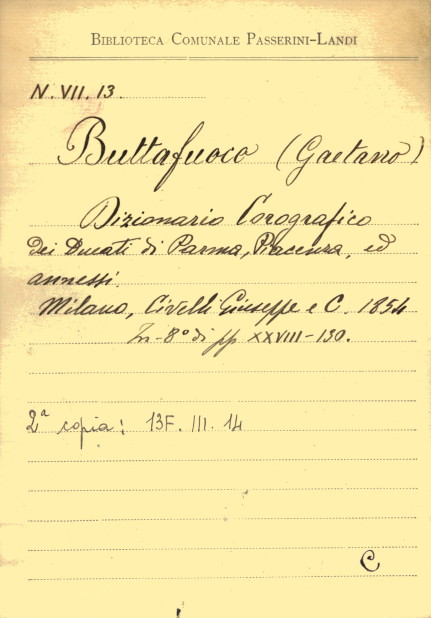 BIBLIOTECA COMUNALE PASSERINI-LANDI
N. VII. 13.
Buttafuoco (Gaetano)
Dizionario Corografico
dei Ducati di Parma, Piacenza, ed
annessi.
Milano, Civelli Giuseppe e C. 1854
In-8° di pp XXVIII-130.
2ª copia: 13F. III. 14
C